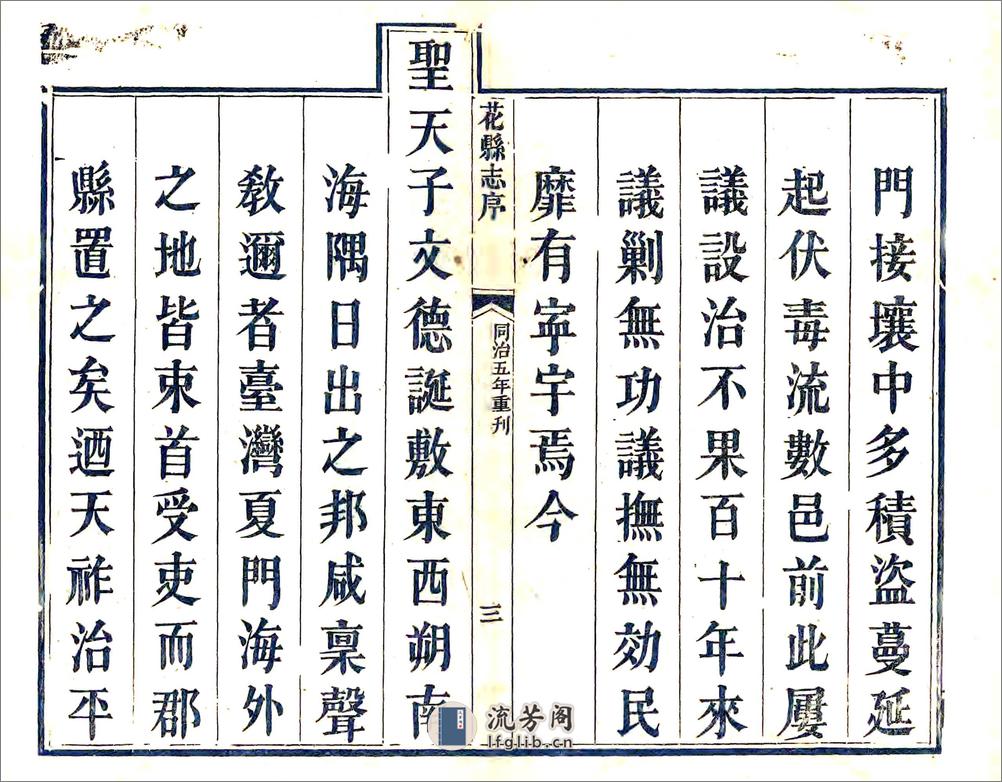 門接壤中多積盜蔓延
起伏毒流數邑前此屢
議設治不果百十年來
議剿無功議撫無効民
靡有寍宇焉今
花縣志序
同治五年重刋
三
聖天子文德誕敷東西朔南
海隅日出之邦咸稟聲
敎邇者臺灣夏門海外
之地皆束首受吏而郡
縣置之矣迺天祚治平
流芳阁
lfglib.cn